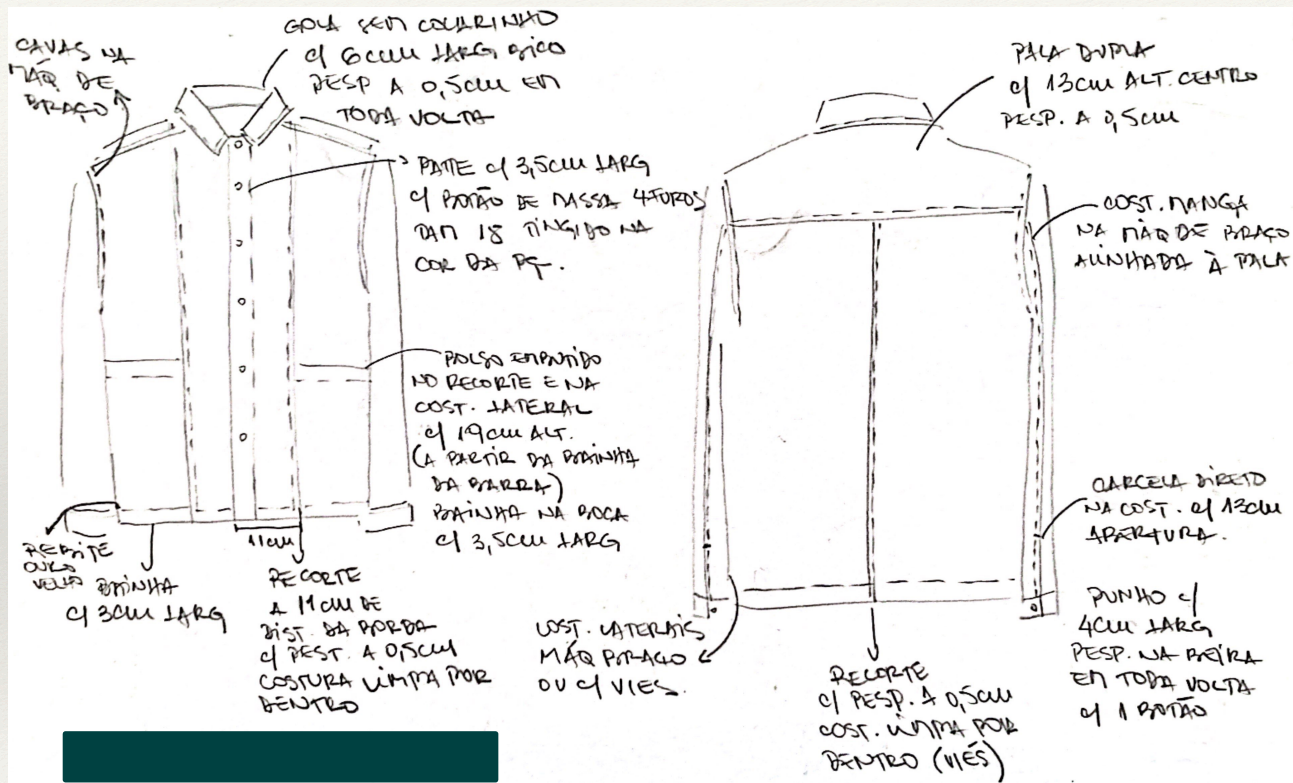 CAVAS NA
MÁQ DE
BRAÇO
GOLA SEM COLARINHO
c/ 6cm LARG BICO
PESP A 0,5cm EM
TODA VOLTA
PATTE c/ 3,5cm LARG
c/ BOTÃO DE MASSA 4 FUROS
TAM 18 TINGIDO NA
COR DA PÇ.
BOLSO EMBUTIDO
NO RECORTE E NA
COST. LATERAL
c/ 19cm ALT.
(A PARTIR DA BAINHA
DA BARRA)
BAINHA NA BOCA
c/ 3,5cm LARG
REBITE
OURO
VELHO
BAINHA
c/ 3cm LARG
11cm
RECORTE
A 11cm DE
DIST. DA BORDA
c/ PEST. A 0,5cm
COSTURA LIMPA POR
DENTRO
PALA DUPLA
c/ 13cm ALT. CENTRO
PESP. A 0,5cm
COST. MANGA
NA MÁQ DE BRAÇO
ALINHADA À PALA
CARCELA DIRETO
NA COST. c/ 13cm
ABERTURA.
PUNHO c/
4cm LARG
PESP. NA BEIRA
EM TODA VOLTA
c/ 1 BOTÃO
COST. LATERAIS
MÁQ BRAÇO
OU c/ VIES.
RECORTE
c/ PESP. A 0,5cm
COST. LIMPA POR
DENTRO (VIÉS)